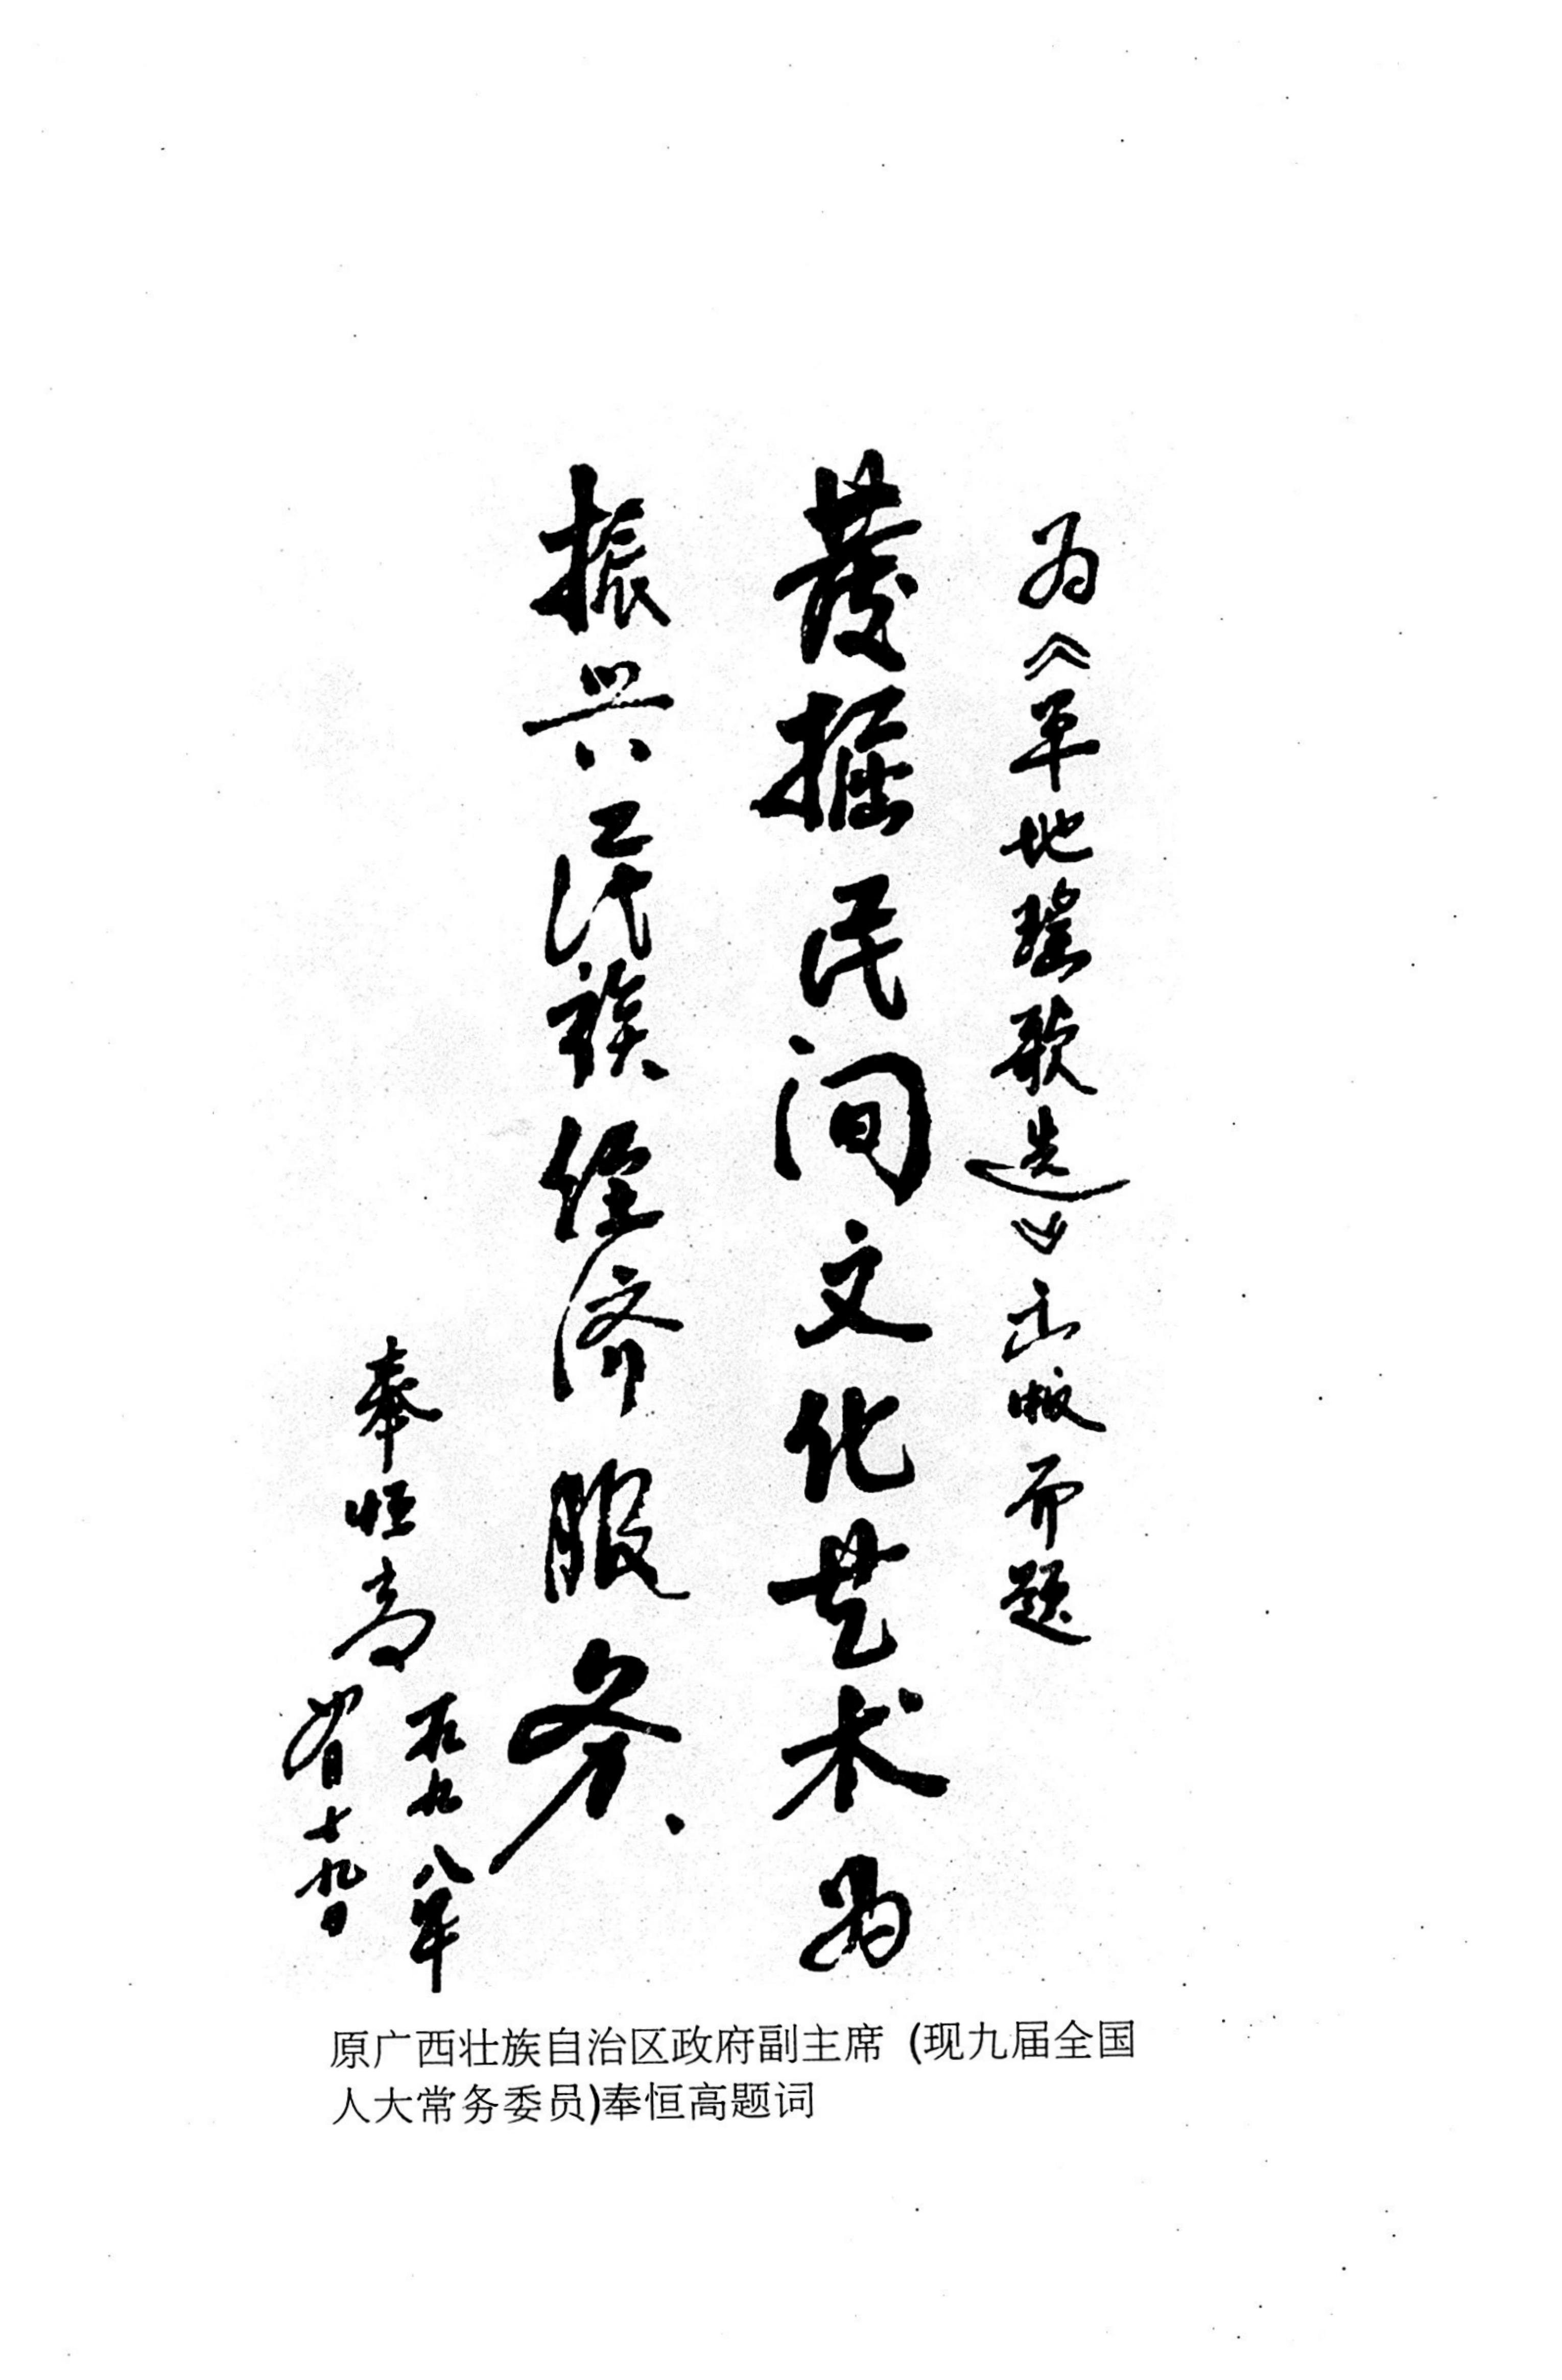 为《平地瑶歌选》出版而题
发掘民间文化艺术为
振兴民族经济服务
奉恒高
一九九八年
十九日
原广西壮族自治区政府副主席 (现九届全国
人大常务委员)奉恒高题词